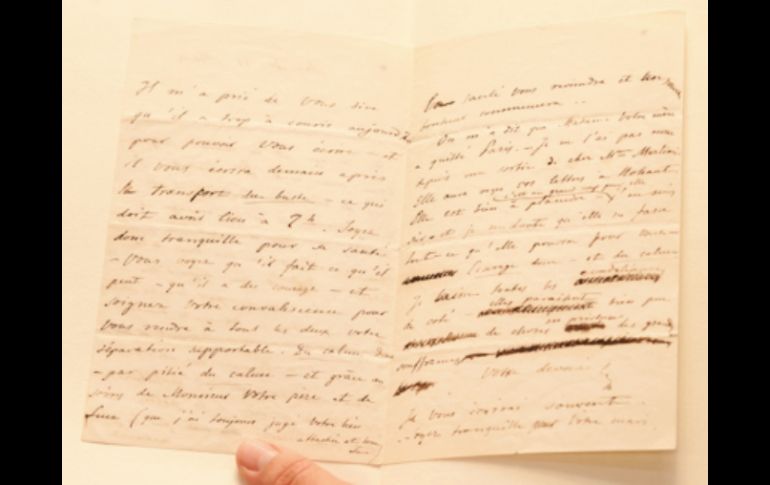 Il m'a prié de vous dire
qu'il a trop à courir aujourd'hui
pour pouvoir vous écrire – et
il vous écrira demain après
le transport du buste – ce qui
doit avoir lieu à 7 h. Soyez
donc tranquille pour sa santé
– Vous voyez qu'il fait ce qu'il
peut – qu'il a du courage – et
soignez votre convalescence pour
vous rendre à tous les deux votre
séparation supportable. Du calme
– par pitié du calme – et grâce aux
soins de Monsieur votre père et de
Luce (que j'ai toujours jugé votre bien
santé vous rejoindre et
bonheur commencera ..
On m'a dit que Madame votre mère
a quitté Paris – Je ne l'ai pas
depuis sortie de chez Mme Marliani
Elle aura reçu vos lettres à
Elle est bien à plaindre –
et je ne doute qu'elle ne fasse
tout ce qu'elle pourra pour
Courage donc – et du calme
Je laisse toutes les
de côté – elles paraîtraient bien peu
de choses en présence des grandes
souffrances
Votre dévoué
Je vous écrirai souvent.
Soyez tranquille pour votre mari